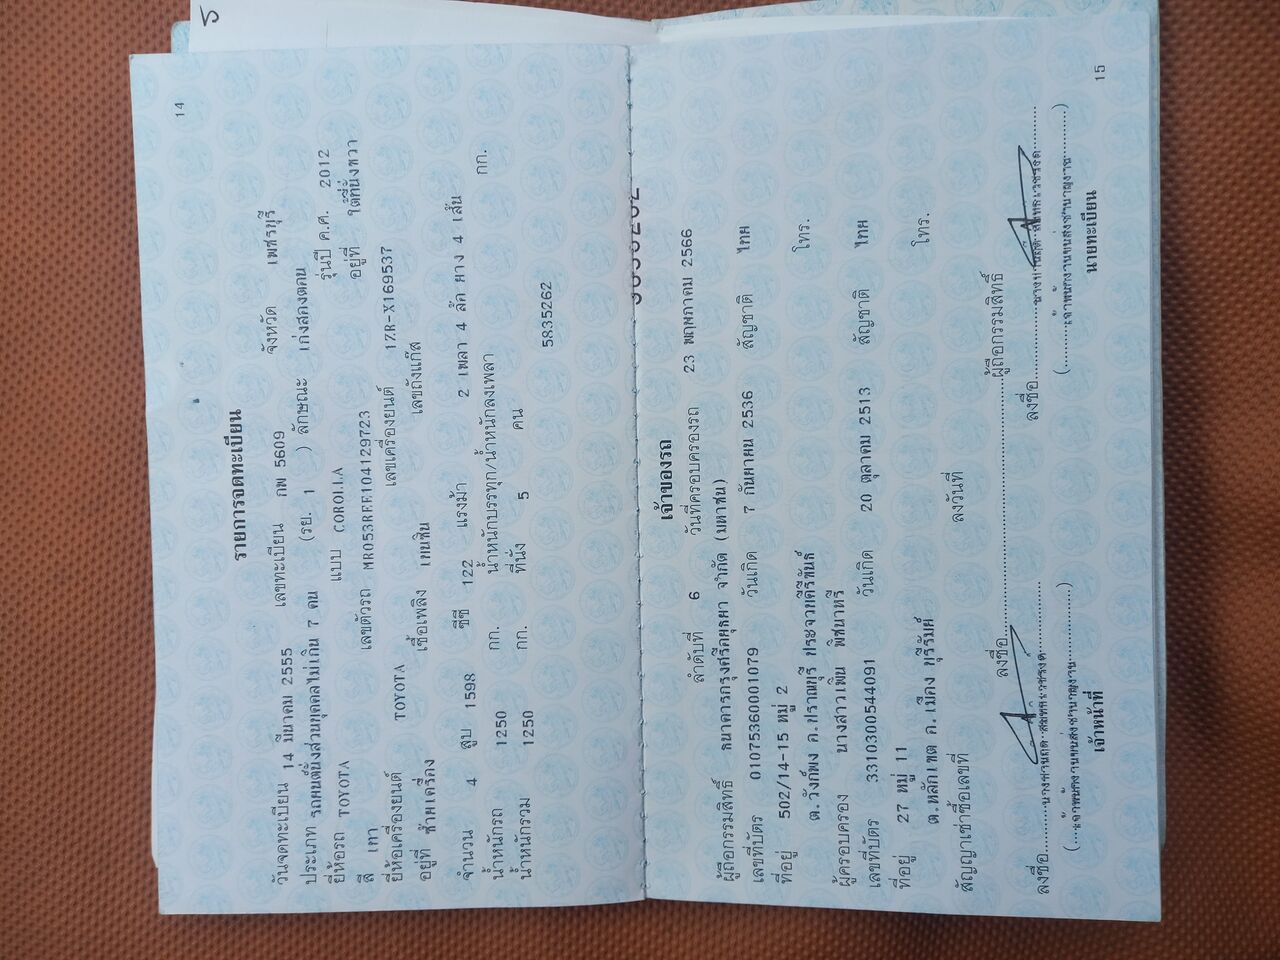 14
รายการจดทะเบียน
วันจดทะเบียน 14 มีนาคม 2555 เลขทะเบียน กพ 5609 จังหวัด เพชรบุรี
ประเภท รถยนต์นั่งส่วนบุคคลไม่เกิน 7 คน (รย. 1 ) ลักษณะ เก๋งสองตอน
ยี่ห้อรถ TOYOTA แบบ COROLLA รุ่นปี ค.ศ. 2012
สี เทา เลขตัวรถ MR053REE104129723 อยู่ที่ ใต้ที่นั่งขวา
ยี่ห้อเครื่องยนต์ TOYOTA เลขเครื่องยนต์ 1ZR-X169537
อยู่ที่ ซ้ายเครื่อง เชื้อเพลิง เบนซิน เลขถังแก๊ส
จำนวน 4 สูบ 1598 ซีซี 122 แรงม้า 2 เพลา 4 ล้อ ยาง 4 เส้น
น้ำหนักรถ 1250 กก. น้ำหนักบรรทุก/น้ำหนักลงเพลา กก.
น้ำหนักรวม 1250 กก. ที่นั่ง 5 คน
5835262
เจ้าของรถ
ลำดับที่ 6 วันที่ครอบครองรถ 23 พฤษภาคม 2566
ผู้ถือกรรมสิทธิ์ ธนาคารกรุงศรีอยุธยา จำกัด (มหาชน)
เลขที่บัตร 01075360001079 วันเกิด 7 กันยายน 2536 สัญชาติ ไทย
ที่อยู่ 502/14-15 หมู่ 2 โทร.
ต.วังก์พง อ.ปราณบุรี ประจวบคีรีขันธ์
ผู้ครอบครอง นางสาวเพิน พิชนาหรี
เลขที่บัตร 3310300544091 วันเกิด 20 ตุลาคม 2513 สัญชาติ ไทย
ที่อยู่ 27 หมู่ 11 โทร.
ต.หลักเขต อ.เมือง บุรีรัมย์
สัญญาเช่าซื้อเลขที่ ลงวันที่
ลงชื่อ ผู้ถือกรรมสิทธิ์
ลงชื่อ ลงชื่อ
(เจ้าพนักงานขนส่งชำนาญงาน) (เจ้าพนักงานขนส่งชำนาญงาน)
เจ้าหน้าที่ นายทะเบียน
15